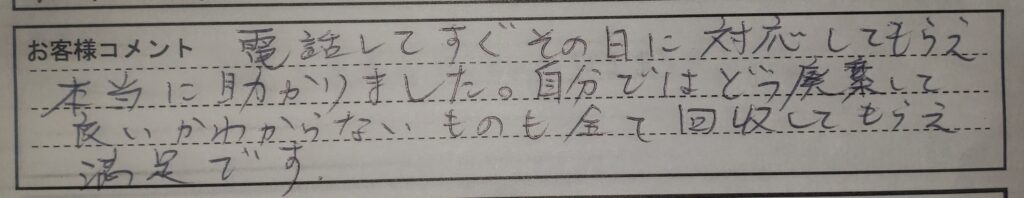 お客様コメント 電話してすぐその日に対応してもらえ
本当に助かりました。自分ではどう廃棄して
良いかわからないものも全て回収してもらえ
満足です.